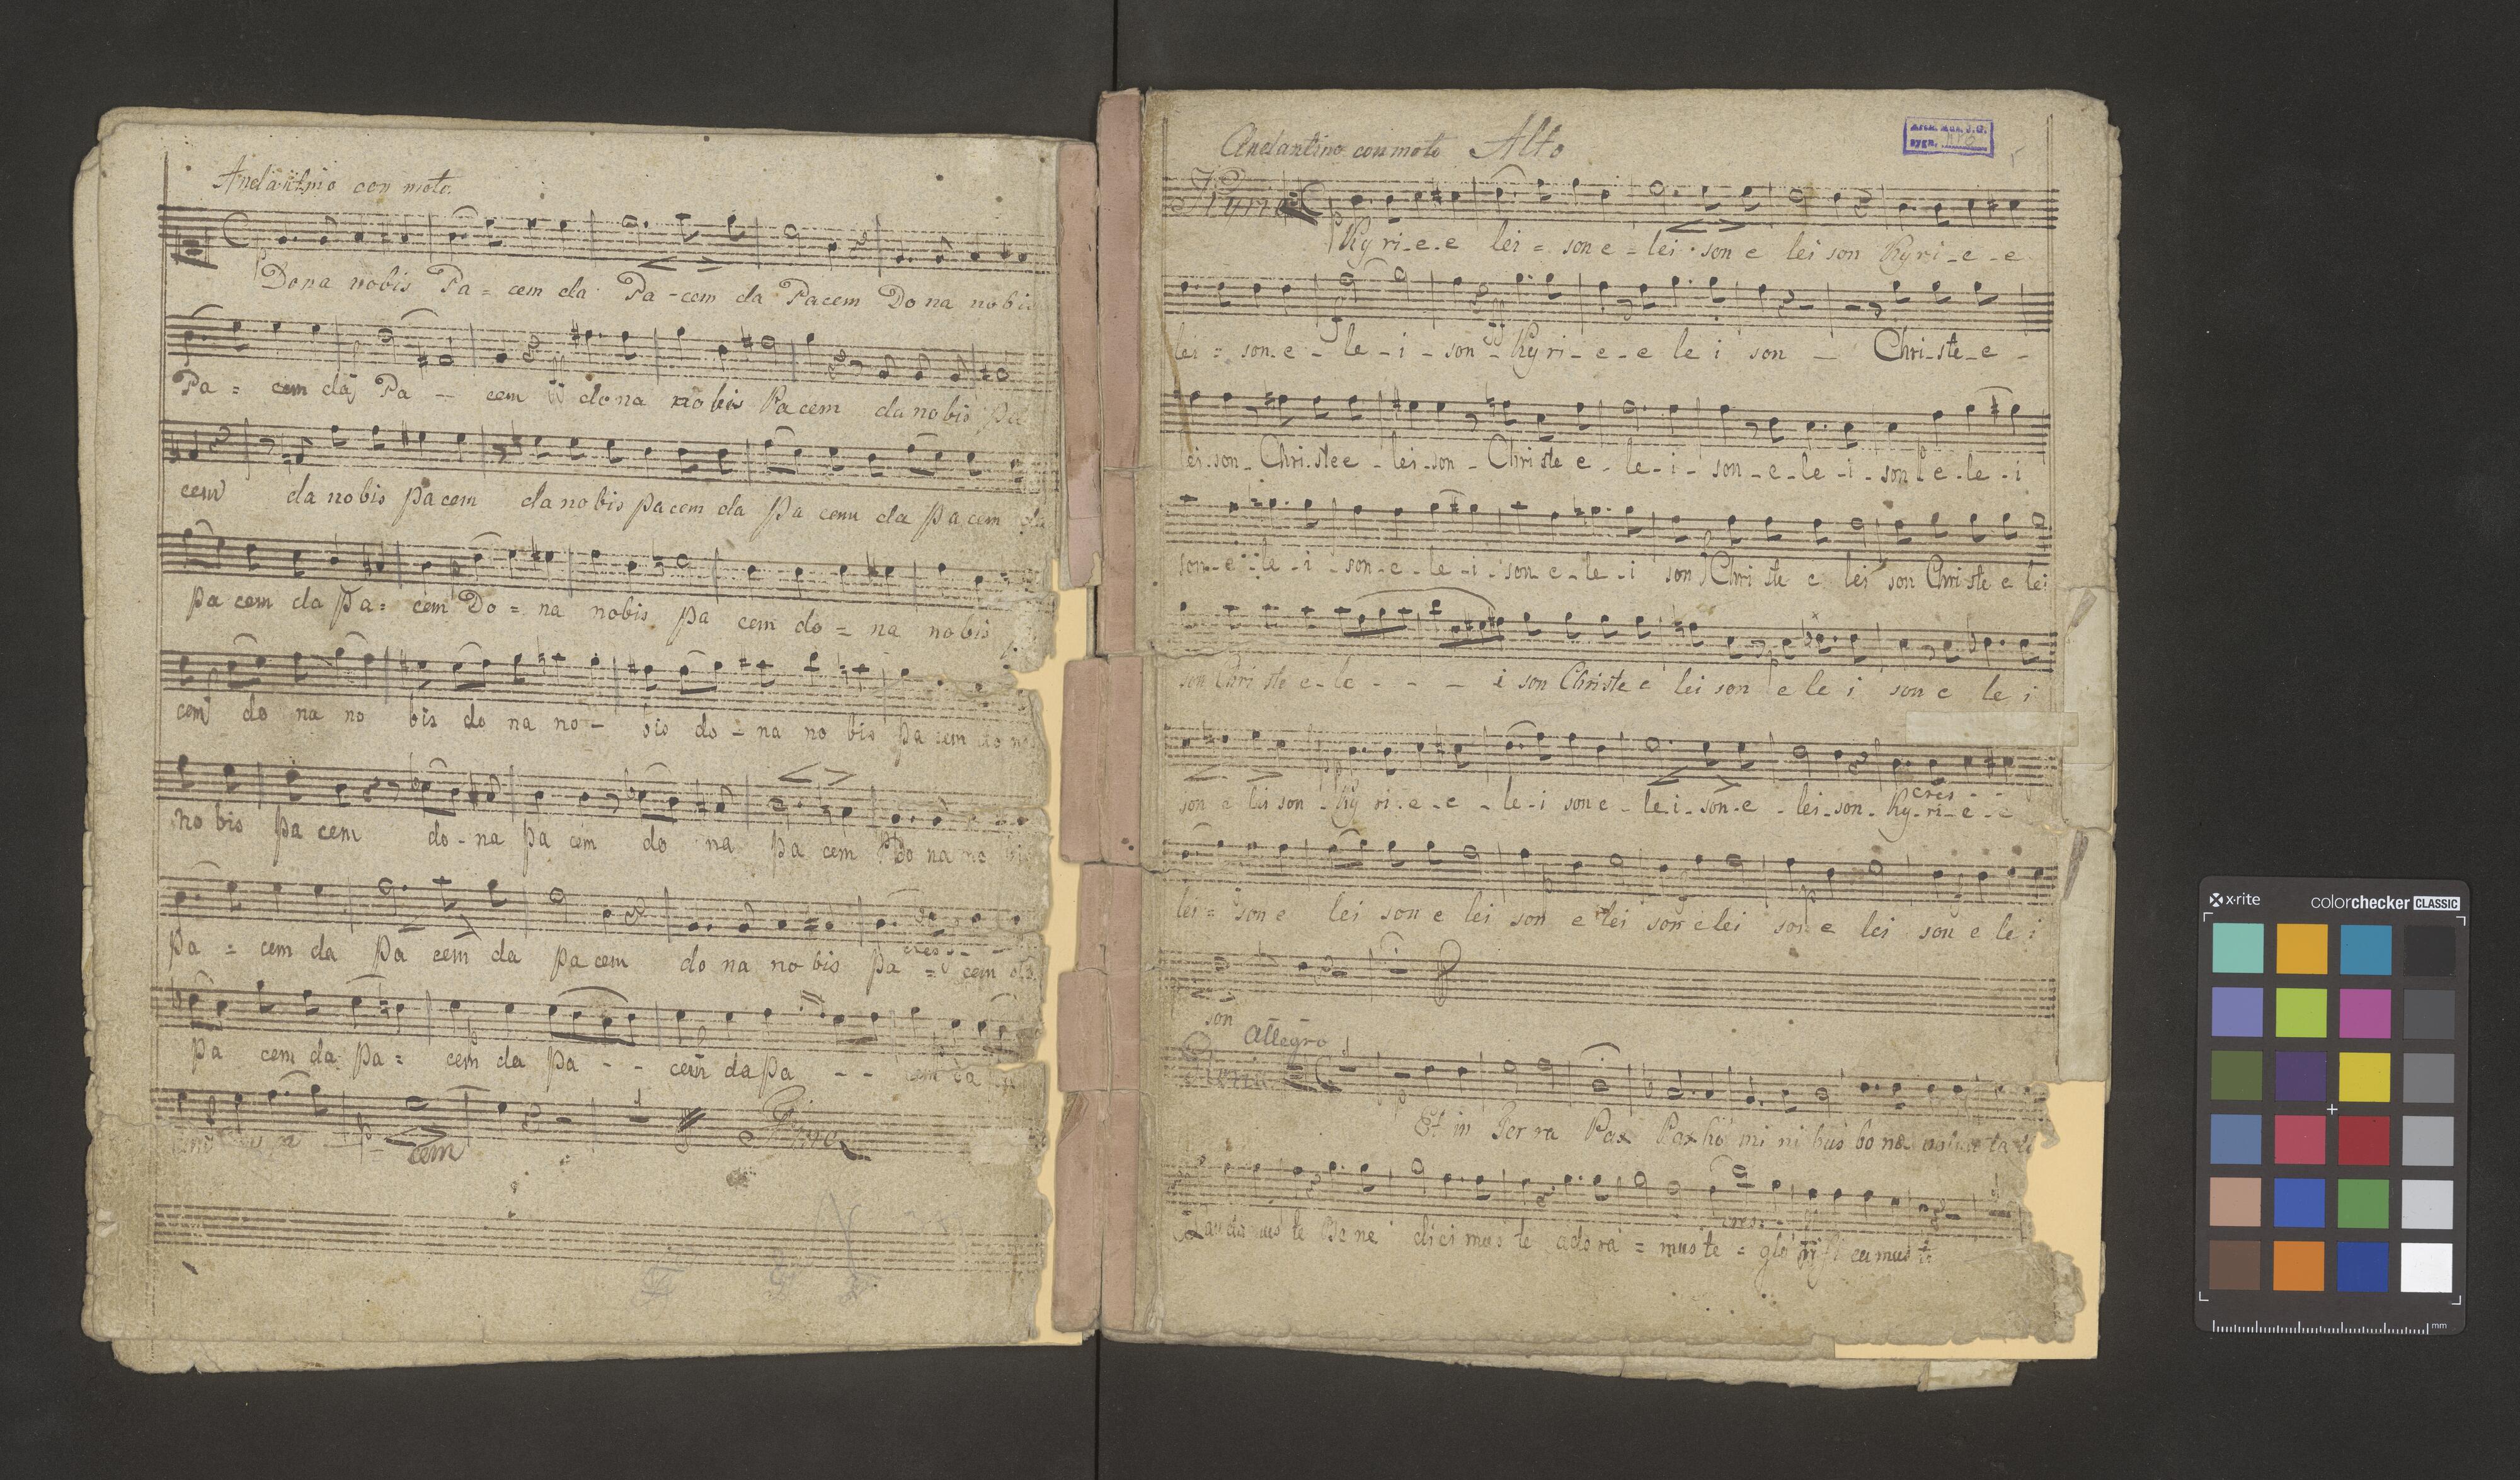 Andantino con moto.
Dona nobis Pa = cem da Pa - cem da Pacem Dona nobis
Pa = cem da Pa - cem dona nobis Pacem da nobis Pa
cem da nobis pacem da nobis pacem da Pa cem da Pa cem da
Pa cem da Pa = cem Do = na nobis Pa cem do = na nobis
cem do na no bis do na no - bis do - na no bis pa cem do na
no bis pa cem do - na pa cem do na pa cem Do na no bis
cres
pa = cem da pa cem da pa cem do na no bis pa = cem da
pa cem da pa = cem da pa - - cem da pa - - cem da
- cem
Fine
Andantino con moto Alto
Arch. Mus. J.G.
sygn.
Kyrie
Ky ri - e - e lei = son e - lei - son e lei son Ky ri - e - e
lei = son - e - le - i - son - Ky ri - e - e le i son - Chri - ste - e -
lei - son - Chri - ste e - lei - son - Chri ste e - le - i - son - e - le - i - son e - le - i
son - e - le - i - son - e - le - i - son e - le - i son Chri ste e lei son Chri ste e lei
son Chri ste e - le - - - i son Christe e lei son e le i son e le i
son e lei son - Ky ri - e - e - le - i son e - le - i - son - e - lei - son - Ky - ri - e - e
cres -
lei = son e lei son e lei son e lei son e lei son e lei son e le i
son
Allegro
Gloria
Et in Terra Pax Pax ho mi ni bus bonæ voluntatis
cres:
Laudamus te Bene dici mus te adora = mus te = glo rifi camus te
x-rite colorchecker CLASSIC
mm